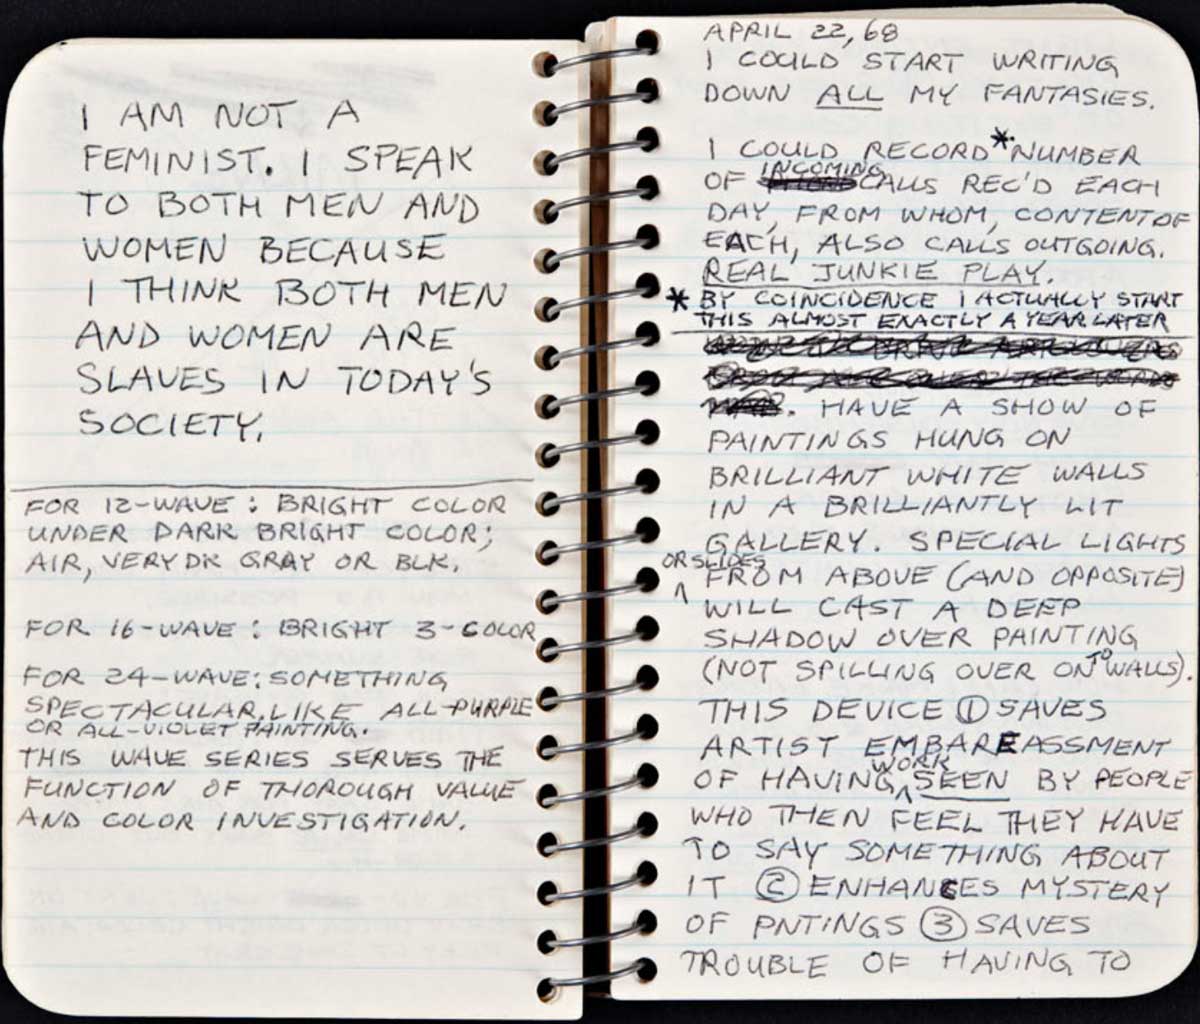 I AM NOT A
FEMINIST. I SPEAK
TO BOTH MEN AND
WOMEN BECAUSE
I THINK BOTH MEN
AND WOMEN ARE
SLAVES IN TODAY'S
SOCIETY.
FOR 12-WAVE: BRIGHT COLOR
UNDER DARK BRIGHT COLOR;
AIR, VERY DK GRAY OR BLK.
FOR 16-WAVE: BRIGHT 3-COLOR
FOR 24-WAVE: SOMETHING
SPECTACULAR, LIKE ALL-PURPLE
OR ALL-VIOLET PAINTING.
THIS WAVE SERIES SERVES THE
FUNCTION OF THOROUGH VALUE
AND COLOR INVESTIGATION.
APRIL 22, 68
I COULD START WRITING
DOWN ALL MY FANTASIES.
I COULD RECORD * NUMBER
OF INCOMING CALLS REC'D EACH
DAY, FROM WHOM, CONTENT OF
EACH, ALSO CALLS OUTGOING.
REAL JUNKIE PLAY.
* BY COINCIDENCE I ACTUALLY START
THIS ALMOST EXACTLY A YEAR LATER
. HAVE A SHOW OF
PAINTINGS HUNG ON
BRILLIANT WHITE WALLS
IN A BRILLIANTLY LIT
GALLERY. SPECIAL LIGHTS
OR SLIDES
^ FROM ABOVE (AND OPPOSITE)
WILL CAST A DEEP
SHADOW OVER PAINTING
(NOT SPILLING OVER ONTO WALLS).
THIS DEVICE ① SAVES
ARTIST EMBAREASSMENT
OF HAVING ^ WORK SEEN BY PEOPLE
WHO THEN FEEL THEY HAVE
TO SAY SOMETHING ABOUT
IT ② ENHANCES MYSTERY
OF PNTINGS ③ SAVES
TROUBLE OF HAVING TO